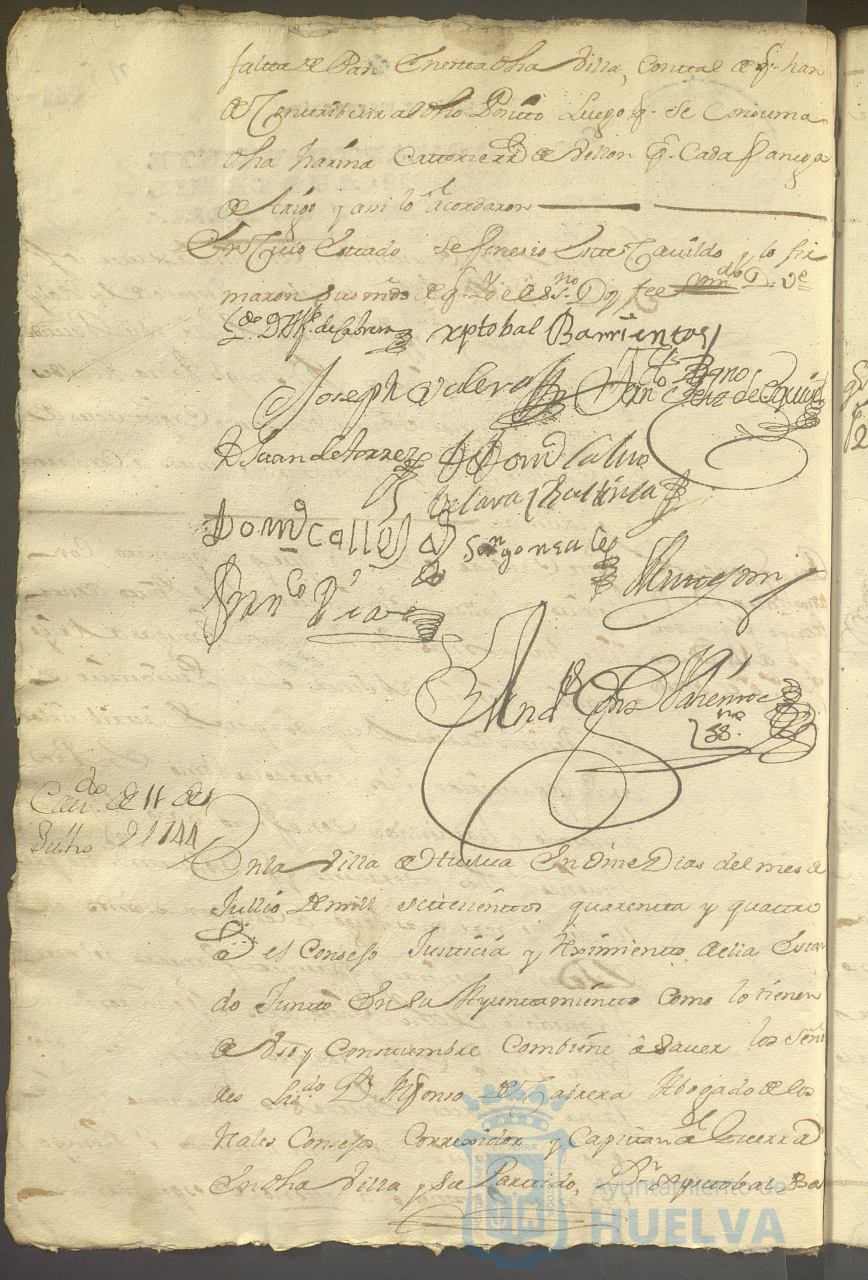 falta de Pan en esta dha Villa, con tal de q. han
de Contribuir al dho Posito Luego q. se Consuma
dha harina Catorze rrs de Vellon pr. Cada fanega
de trigo y asi lo acordaron
En Cuio Estado se fenesio Este Cauildo y lo fir
maron sus mrds de q. Yo el ssno. Doy fee
Ldo. D. Alfo. de Cabrera xptobal Barrientos
Joseph Valera
D Juan de torres D Domo Caluo
de lara
Domo Calles
Franco Diaz
Andrs
Cau.do de 11 de
Jullio de 1744
En la Villa de Huelua En onze Dias del mes de
Jullio de mill setecientos quarenta y quattro
el Consejo Justicia y Reximiento della Estan
do Junto En su Ayuntamiento Como lo tienen
de Vso y Constumbre Combiene a sauer los Seño
res Lizdo Dn Alfonso de Cabrera Abogado de los
Reales Consejos Correxidor y Capitan a Guerra
En dha Villa y Su Partido, Dn xptobal Ba
Ayuntamiento de
HUELVA